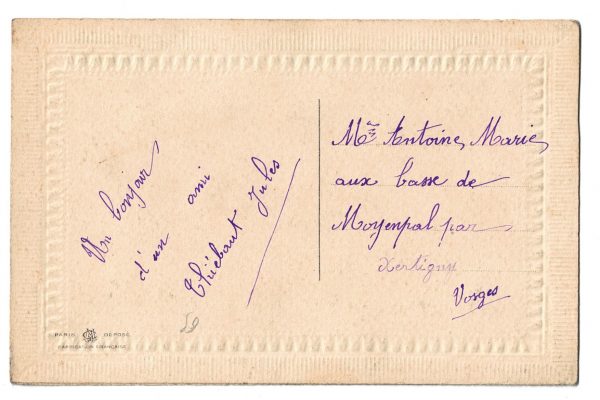 Un bonjour
d'un ami
Thiébaut Jules
Mme Antoine Marie
aux basse de
Moyenpal par
Xertigny
Vosges
59
PARIS DEPOSE
FABRICATION FRANÇAISE